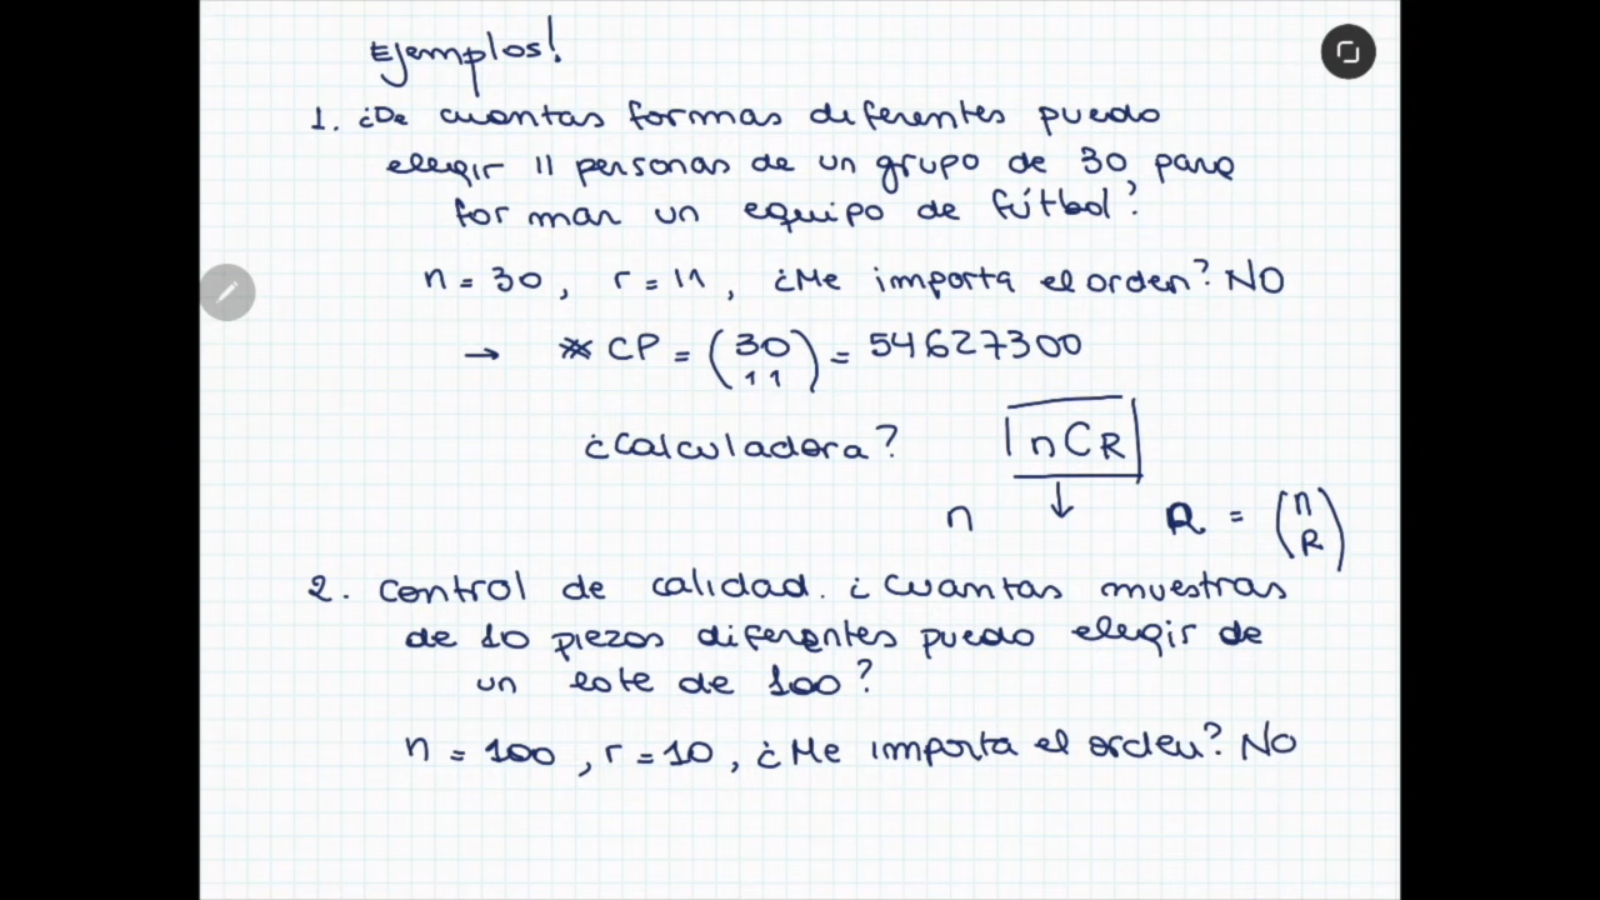 Ejemplos!
1. ¿De cuantas formas diferentes puedo
elegir 11 personas de un grupo de 30 para
formar un equipo de fútbol?
n = 30, r = 11, ¿Me importa el orden? NO
→ * CP = (30 11) = 54627300
¿Calculadora? nCR
n ↓ R = (n R)
2. Control de calidad. ¿Cuantas muestras
de 10 piezas diferentes puedo elegir de
un lote de 100?
n = 100, r = 10, ¿Me importa el orden? No